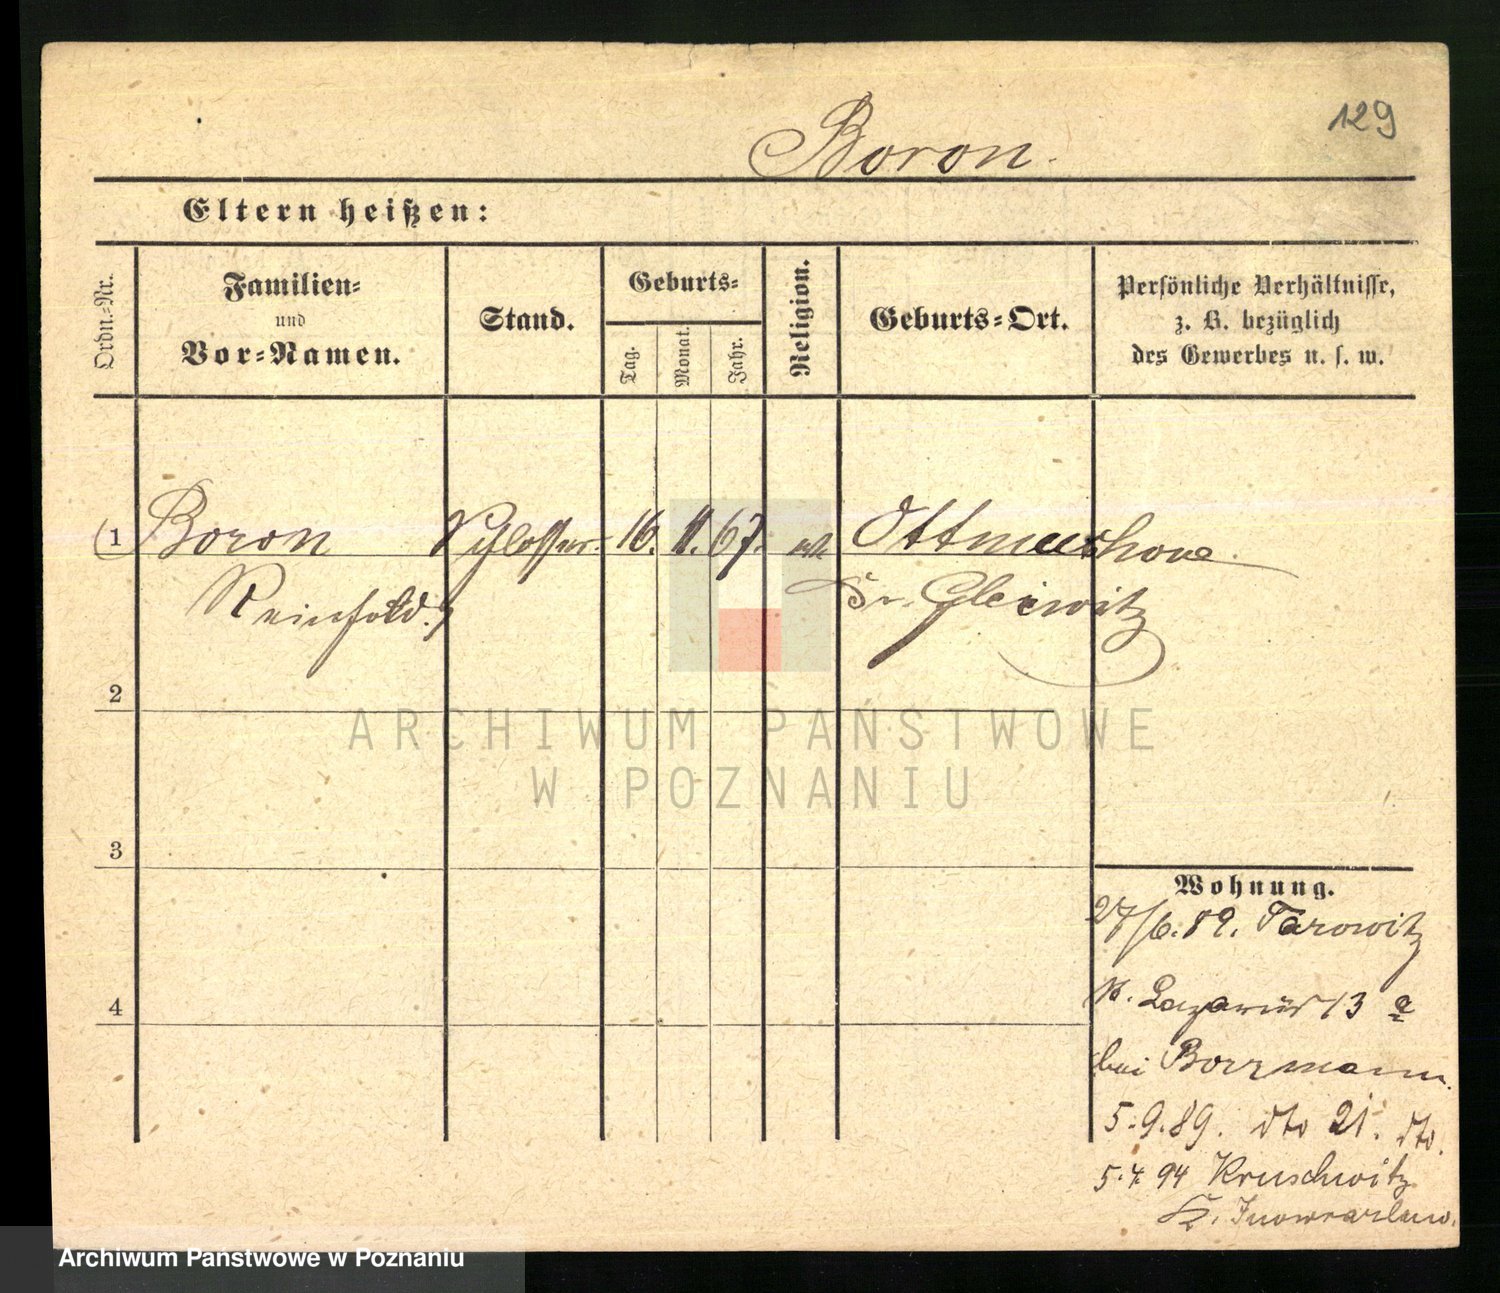 129
Boron.
Eltern heißen:
Ordn.-Nr.
Familien-
und
Vor-Namen.
Stand.
Geburts-
Tag.
Monat.
Jahr.
Religion.
Geburts-Ort.
Persönliche Verhältnisse,
z. B. bezüglich
des Gewerbes u. s. w.
1 Boron Schlosser. 16. 11. 67.
Reinhold.
Kr. Gleiwitz
2
ARCHIWUM PAŃSTWOWE
W POZNANIU
3
4
Wohnung.
27/6.89. Tarowitz
St. Lazarus 13 a
bei Borzmann.
5.9.89. dto 21. dto.
5.4.94 Kruschwitz
K. Inowrazlaw.
Archiwum Państwowe w Poznaniu